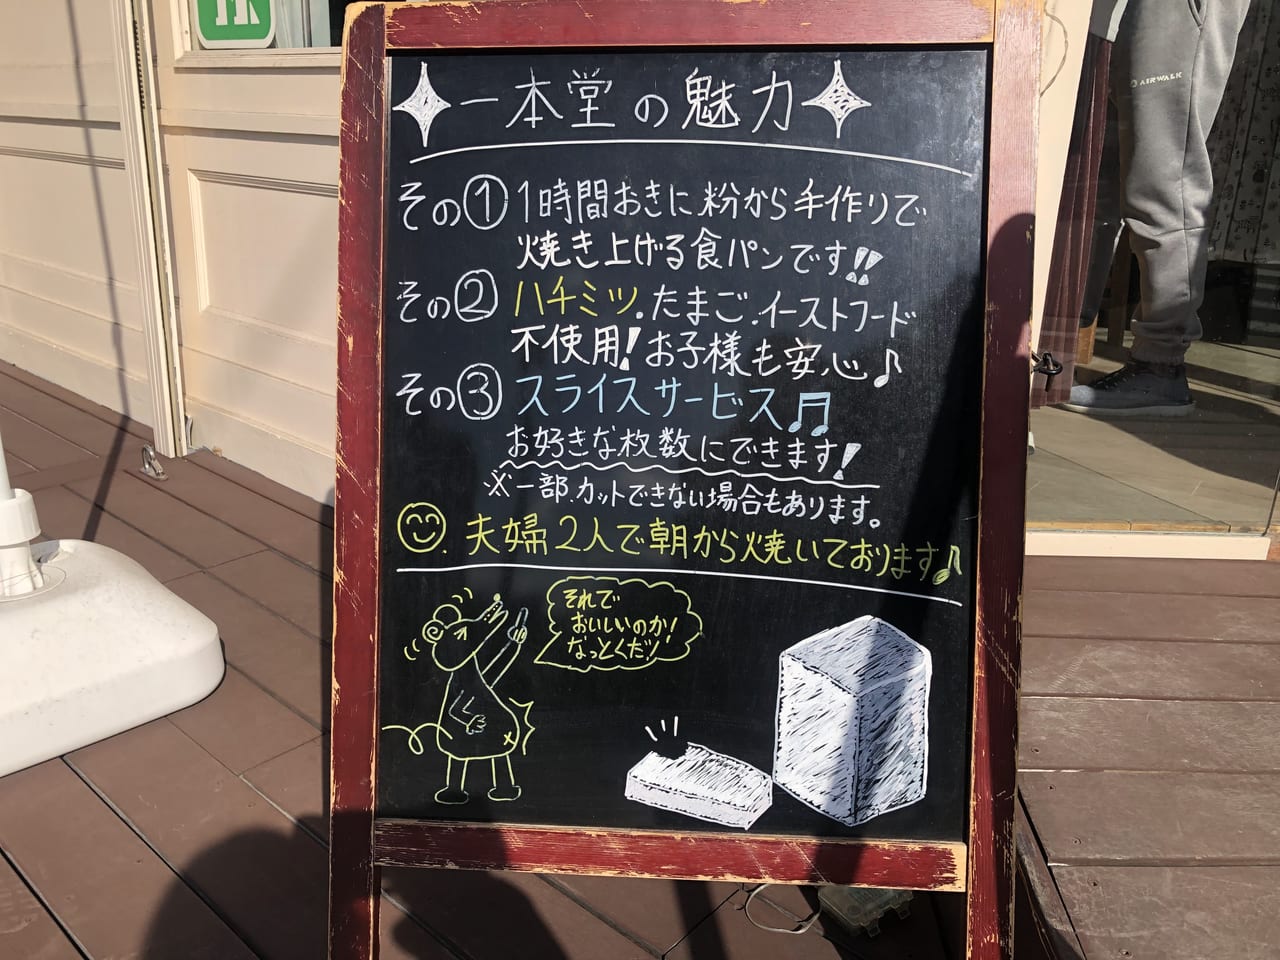 一本堂の魅力
その① 1時間おきに粉から手作りで
焼き上げる食パンです!!
その② ハチミツ.たまご.イーストフード
不使用!お子様も安心♪
その③ スライスサービス♫
お好きな枚数にできます!
※一部.カットできない場合もあります。
夫婦2人で朝から焼いております♪
それで
おいしいのか!
なっとくだッ!
AIRWALK